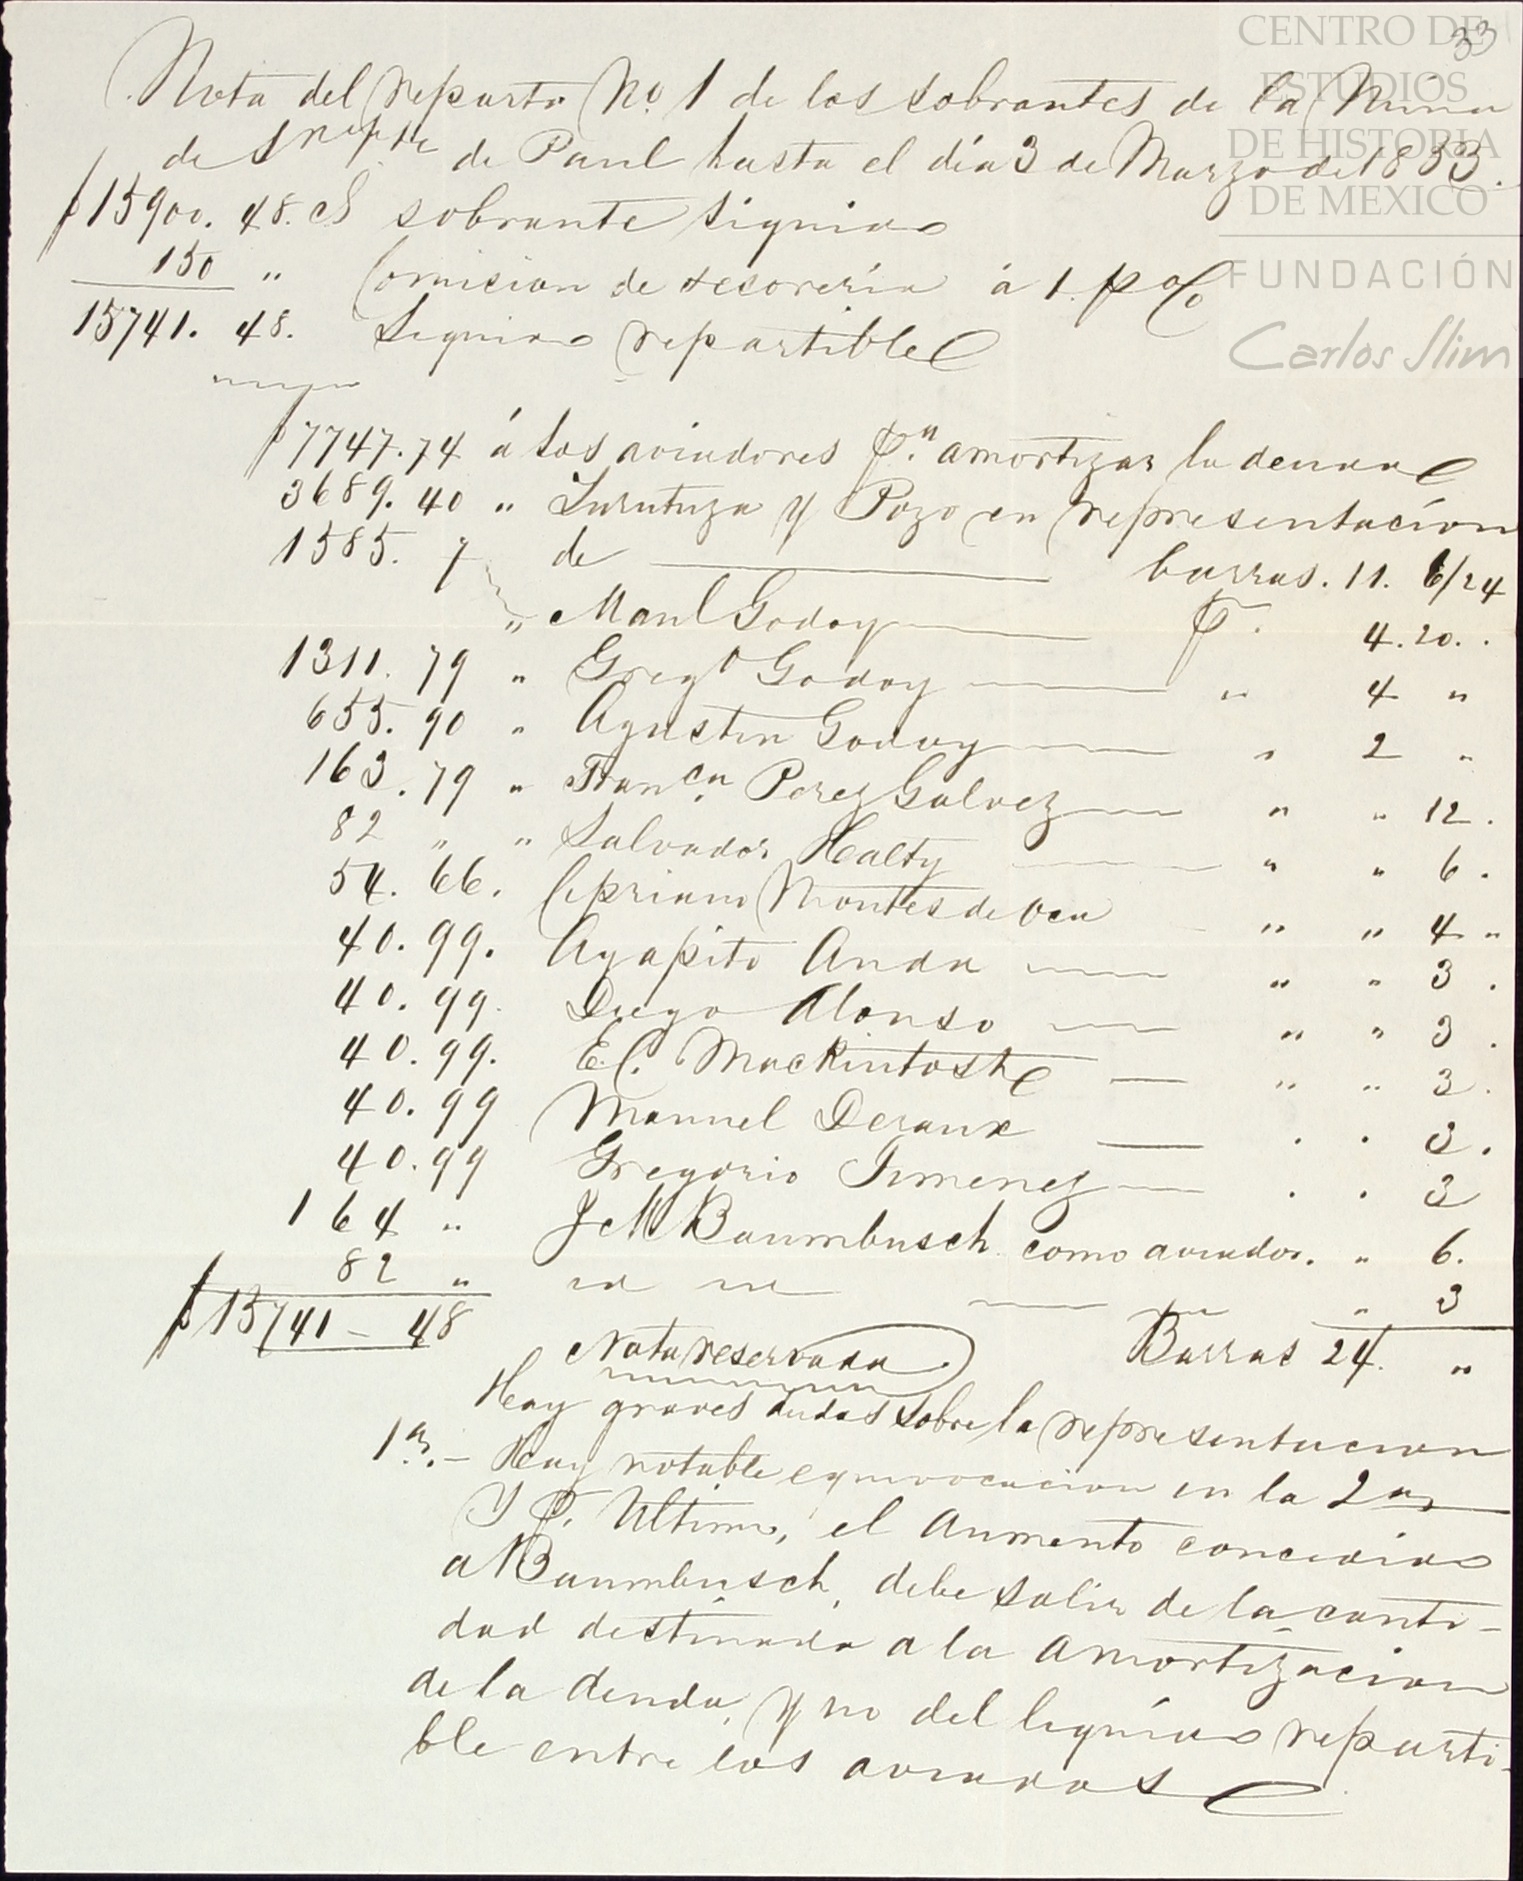 CENTRO DE
ESTUDIOS
DE HISTORIA
DE MEXICO
FUNDACIÓN
Carlos Slim
33
Nota del reparto No. 1 de los sobrantes de la Mina
de de Paul hasta el día 3 de Marzo de 1833.
$15900. 48. cs sobrante liquido
150 " Comicion de tesoreria á 1. p%
15741. 48. Liquido repartible
$7747.74 á los aviadores pa. amortizar la deuda
3689. 40 " Lurutuza y Pozo en representacion
1585. 7 de barras. 11. 6/24
" Manl Godoy 4. 20. .
1311. 79 " Grego Godoy " 4 "
655. 90 " Agustin Godoy " 2 "
163. 79 " Franca. Perez Galvez " " 12.
82 " " Salvador Healty " " 6.
54. 66. Cipriano Montes de Oca " " 4 "
40. 99. Agapito Anda " " 3.
40. 99. Diego Alonso " " 3.
40. 99. E.C. Mackintosh " " 3.
40. 99 Manuel Deraux . . 3.
40. 99 Gregorio Jimenez . . 3
164 " J M Baumbusch como aviador. " 6.
82 " id id " 3
$15741 - 48 Barras 24. "
Nota reservada.
Hay graves dudas sobre la representacion
1a. - Hay notable equivocacion en la 2a
y P. Ultimo, el aumento concedido
a Baumbusch, debe salir de la canti-
dad destinada a la amortizacion
de la deuda, y no del liquido reparti-
ble entre los aviados